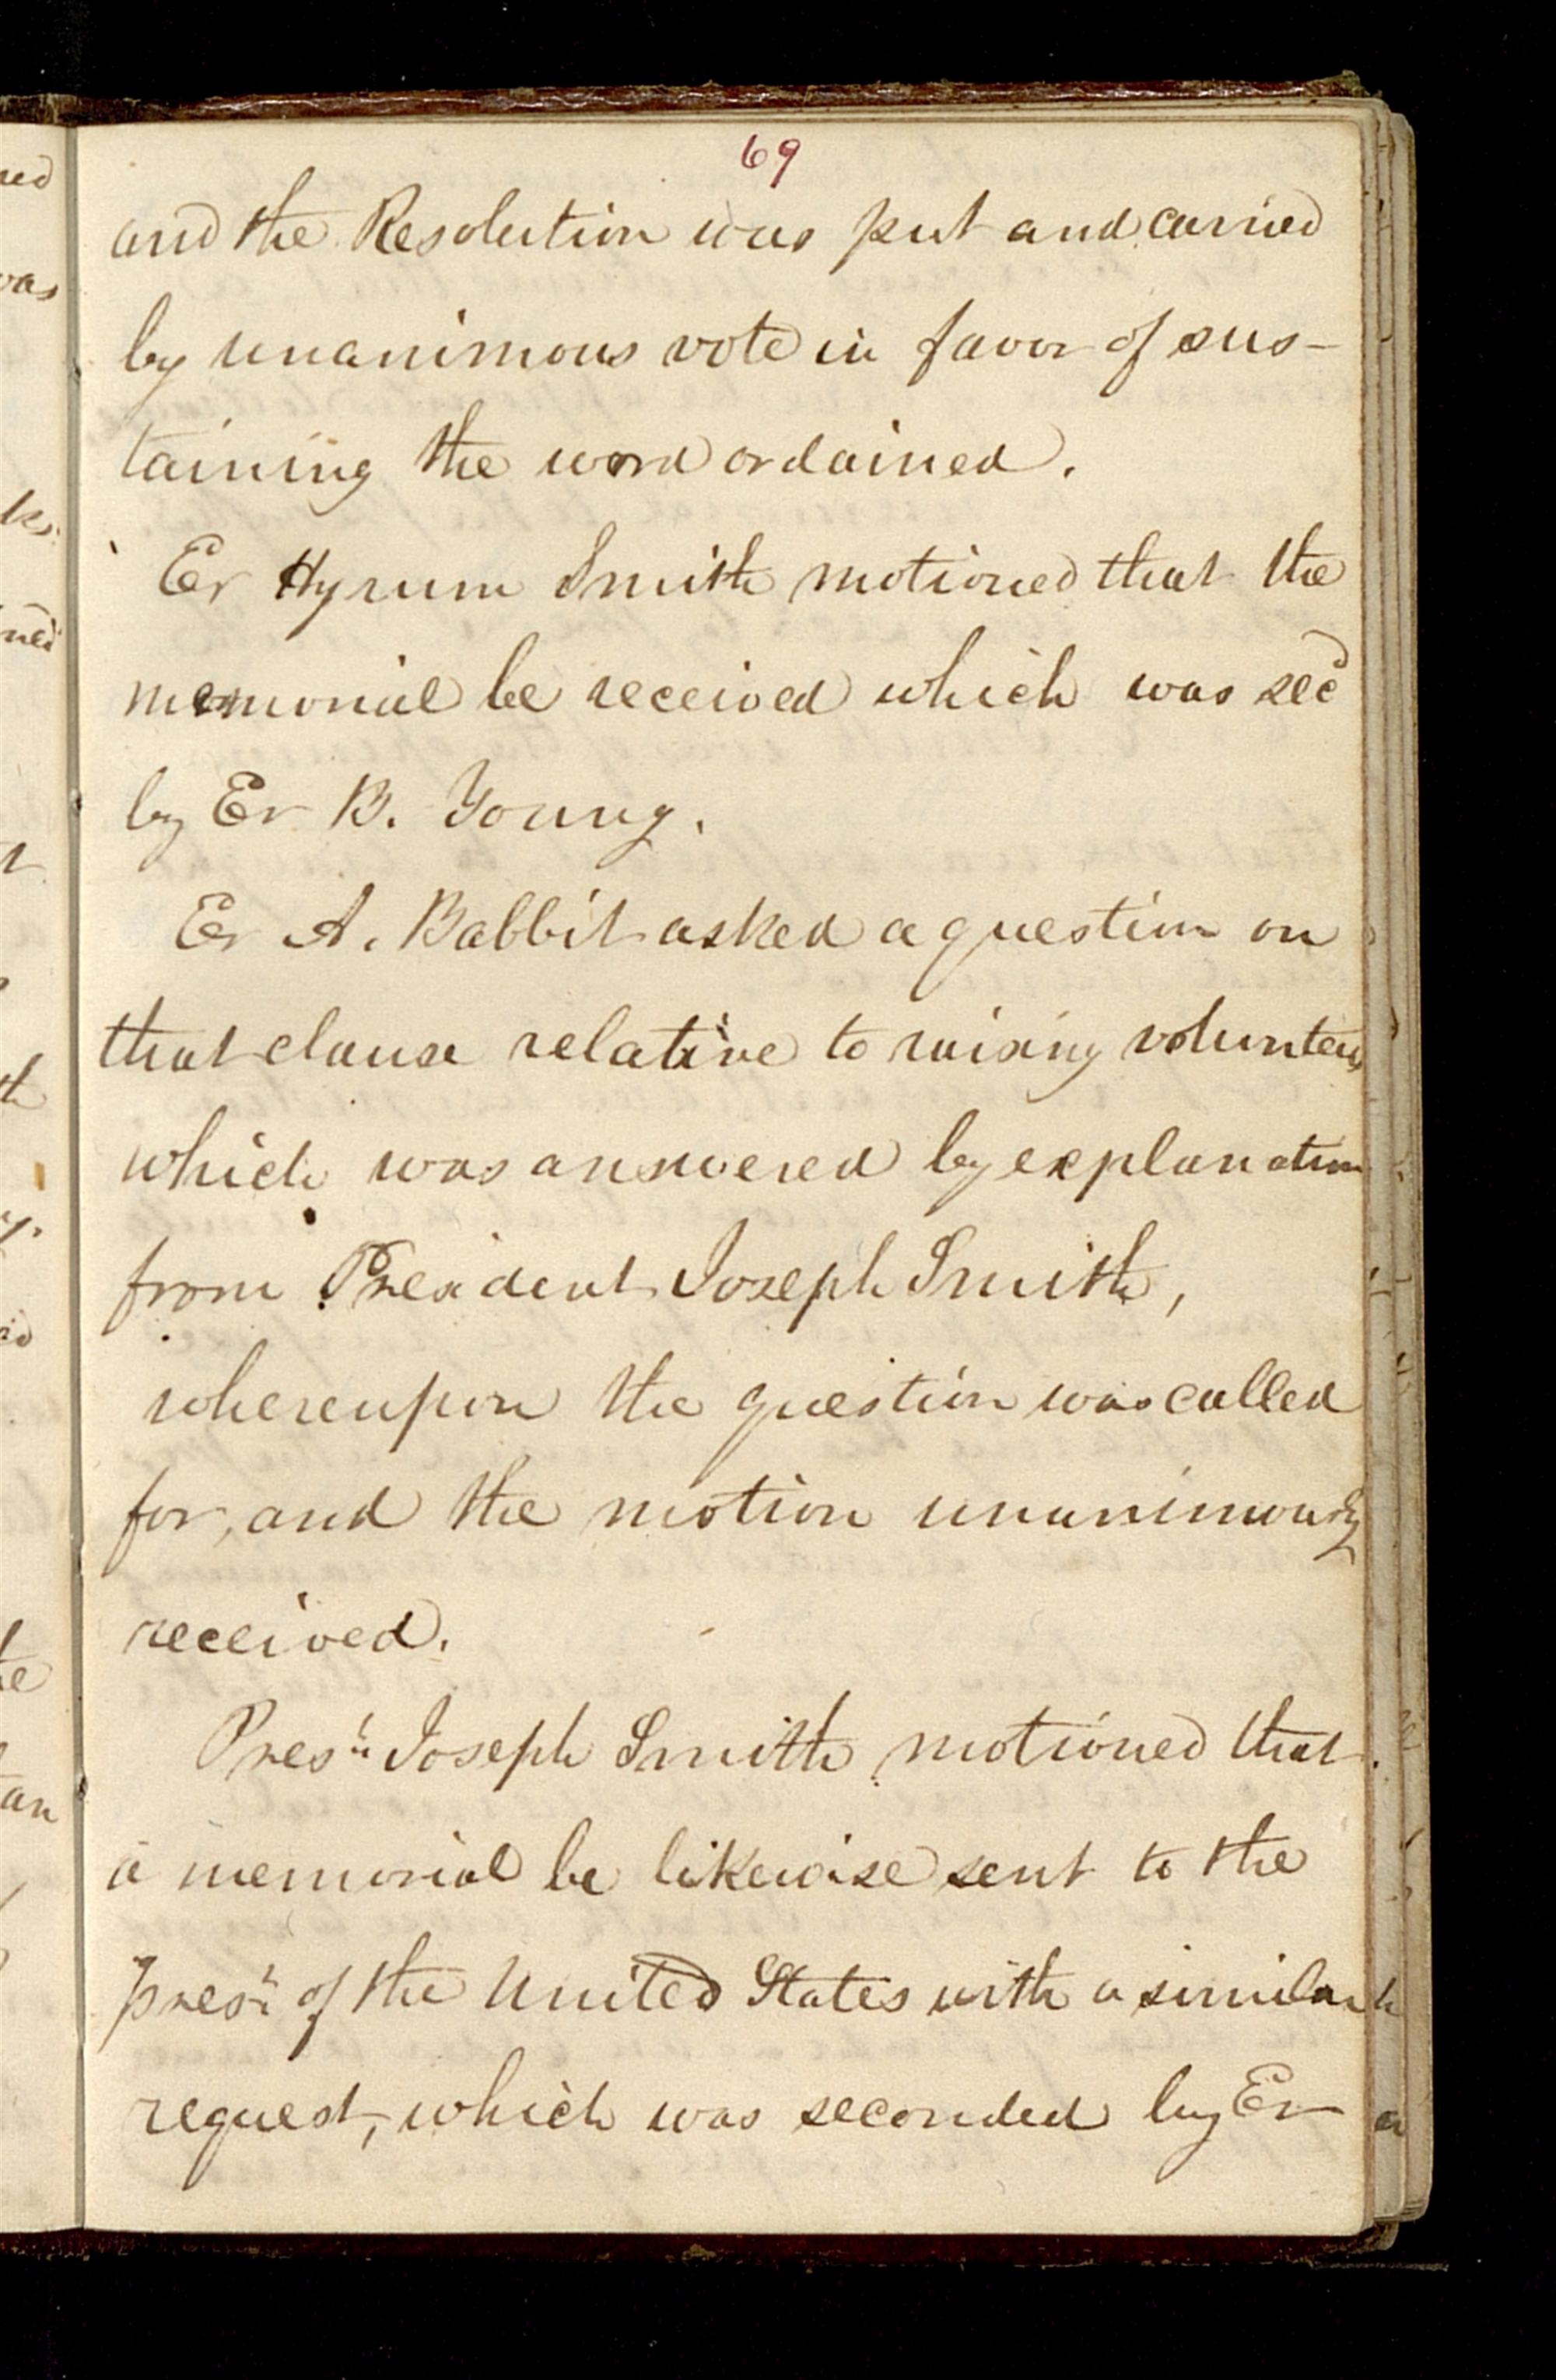 69
and the Resolution was put and carried
by unanimous vote in favor of sus-
taining the word ordained.
Er Hyrum Smith motioned that the
memorial be received which was secd
by Er B. Young.
Er A. Babbit asked a question on
that clause relative to raising volunteers
which was answered by explanation
from President Joseph Smith,
whereupon the question was called
for, and the motion unanimously
received.
Prest. Joseph Smith motioned that
a memorial be likewise sent to the
prest. of the United States with a similar
request, which was seconded by Er